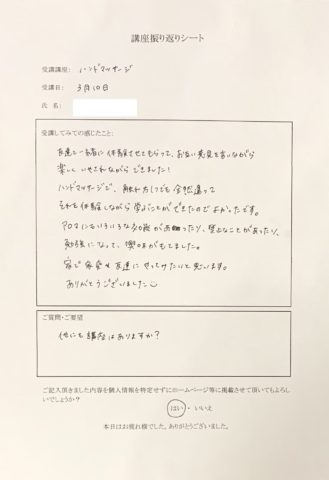 講座振り返りシート
受講講座： ハンドマッサージ
受講日： 3月10日
氏 名：
受講してみての感じたこと：
友達と一緒に体験させてもらって、お互い意見を言いながら
楽しくいやされながらできました！
ハンドマッサージで、触れ方1つでも全然違って
それを体験しながら学ぶことができたのでよかったです。
アロマにもいろいろな効能があったり、禁止なことがあったり、
勉強になって、興味がもてました。
家で家族や友達にやってみたいと思います。
ありがとうございました
ご質問・ご要望
他にも講座はありますか？
ご記入頂きました内容を個人情報を特定せずにホームページ等に掲載させて頂いてもよろし
いでしょうか？
はい ・ いいえ
本日はお疲れ様でした。ありがとうございました。